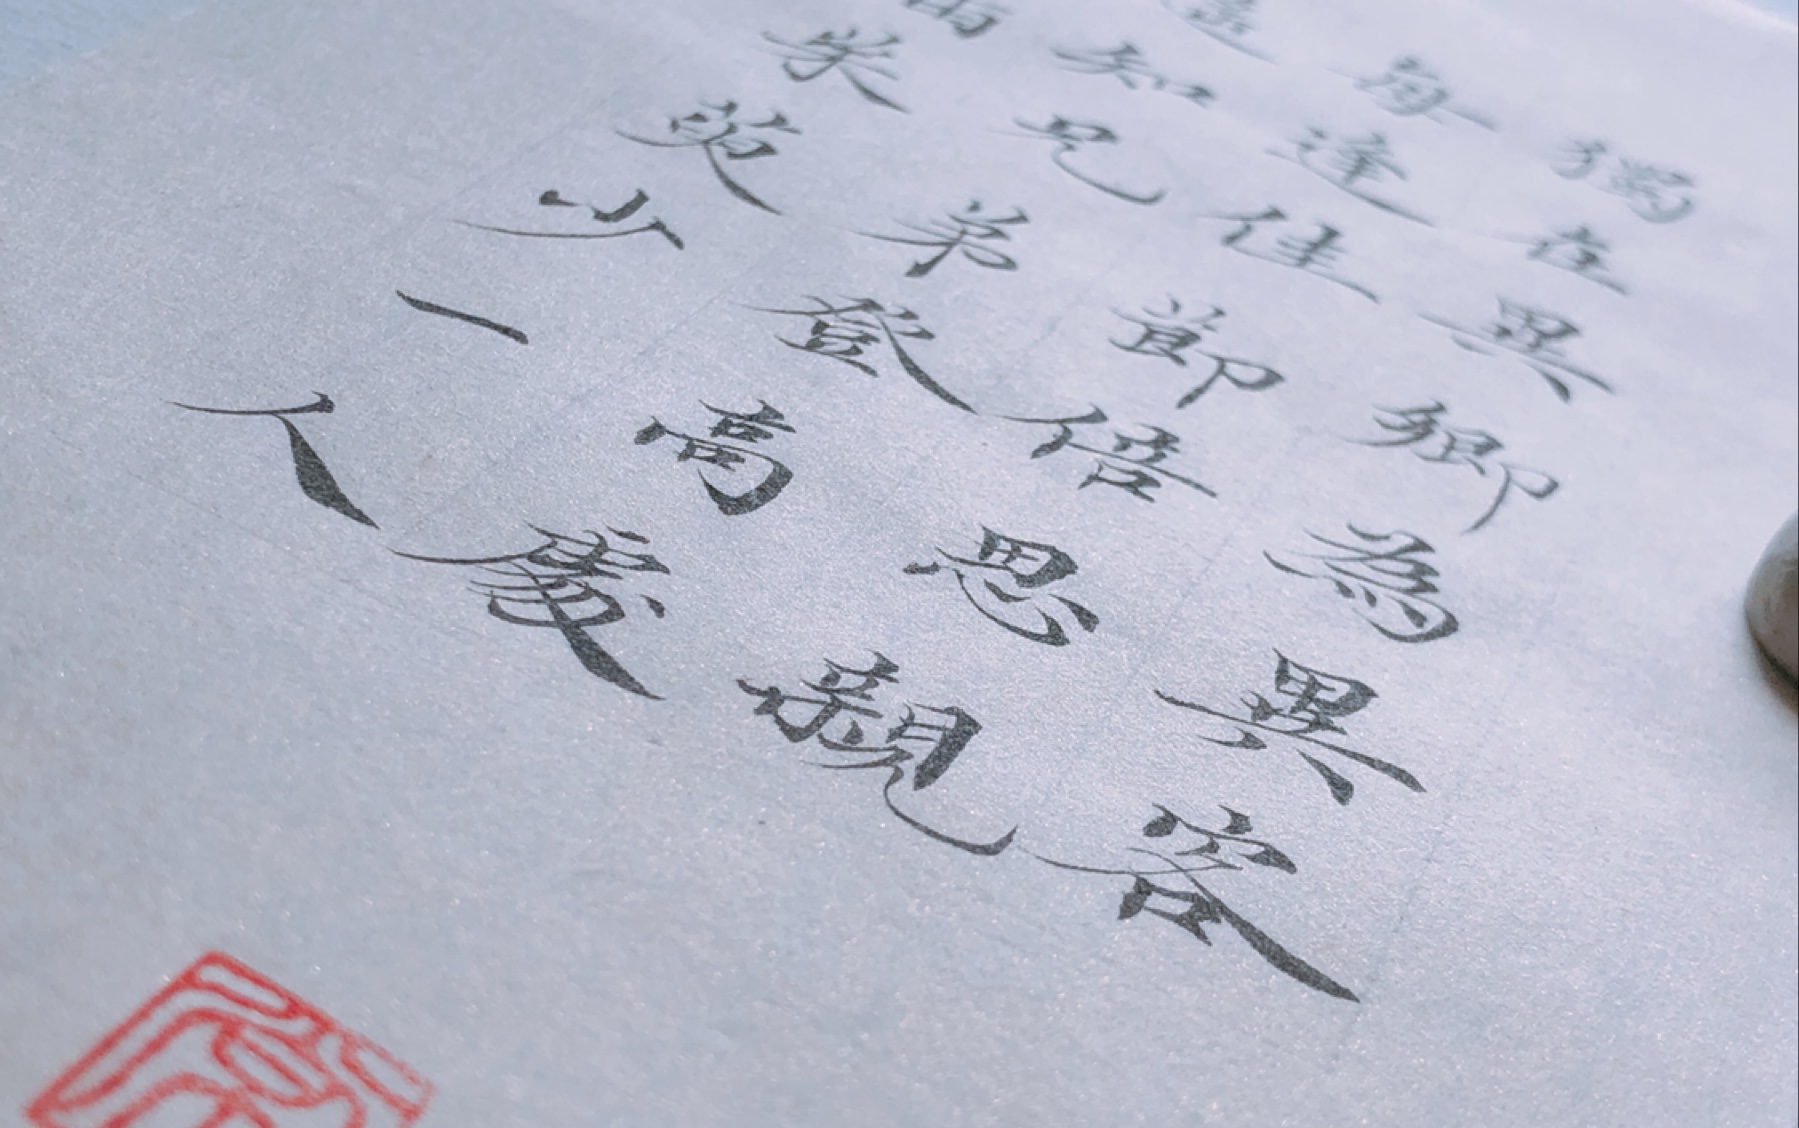 獨在異鄉為異客
每逢佳節倍思親
遙知兄弟登高處
茱萸少一人